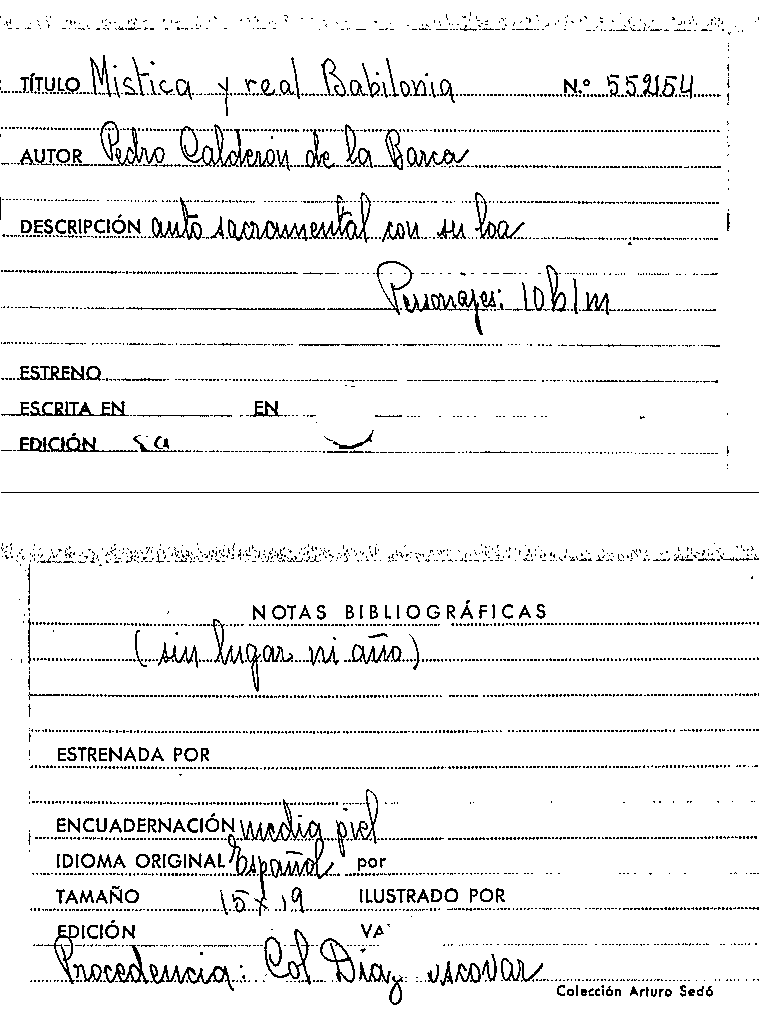 TÍTULO Mistica y real Babilonia N.º 552154
AUTOR Pedro Calderón de la Barca
DESCRIPCIÓN auto sacramental con su loa
Personajes: 10h/m
ESTRENO
ESCRITA EN EN
EDICIÓN sa
NOTAS BIBLIOGRÁFICAS
(sin lugar ni año)
ESTRENADA POR
ENCUADERNACIÓN media piel
IDIOMA ORIGINAL Español por
TAMAÑO 15 x 19 ILUSTRADO POR
EDICIÓN VA
Procedencia: Col Díaz escovar
Colección Arturo Sedó